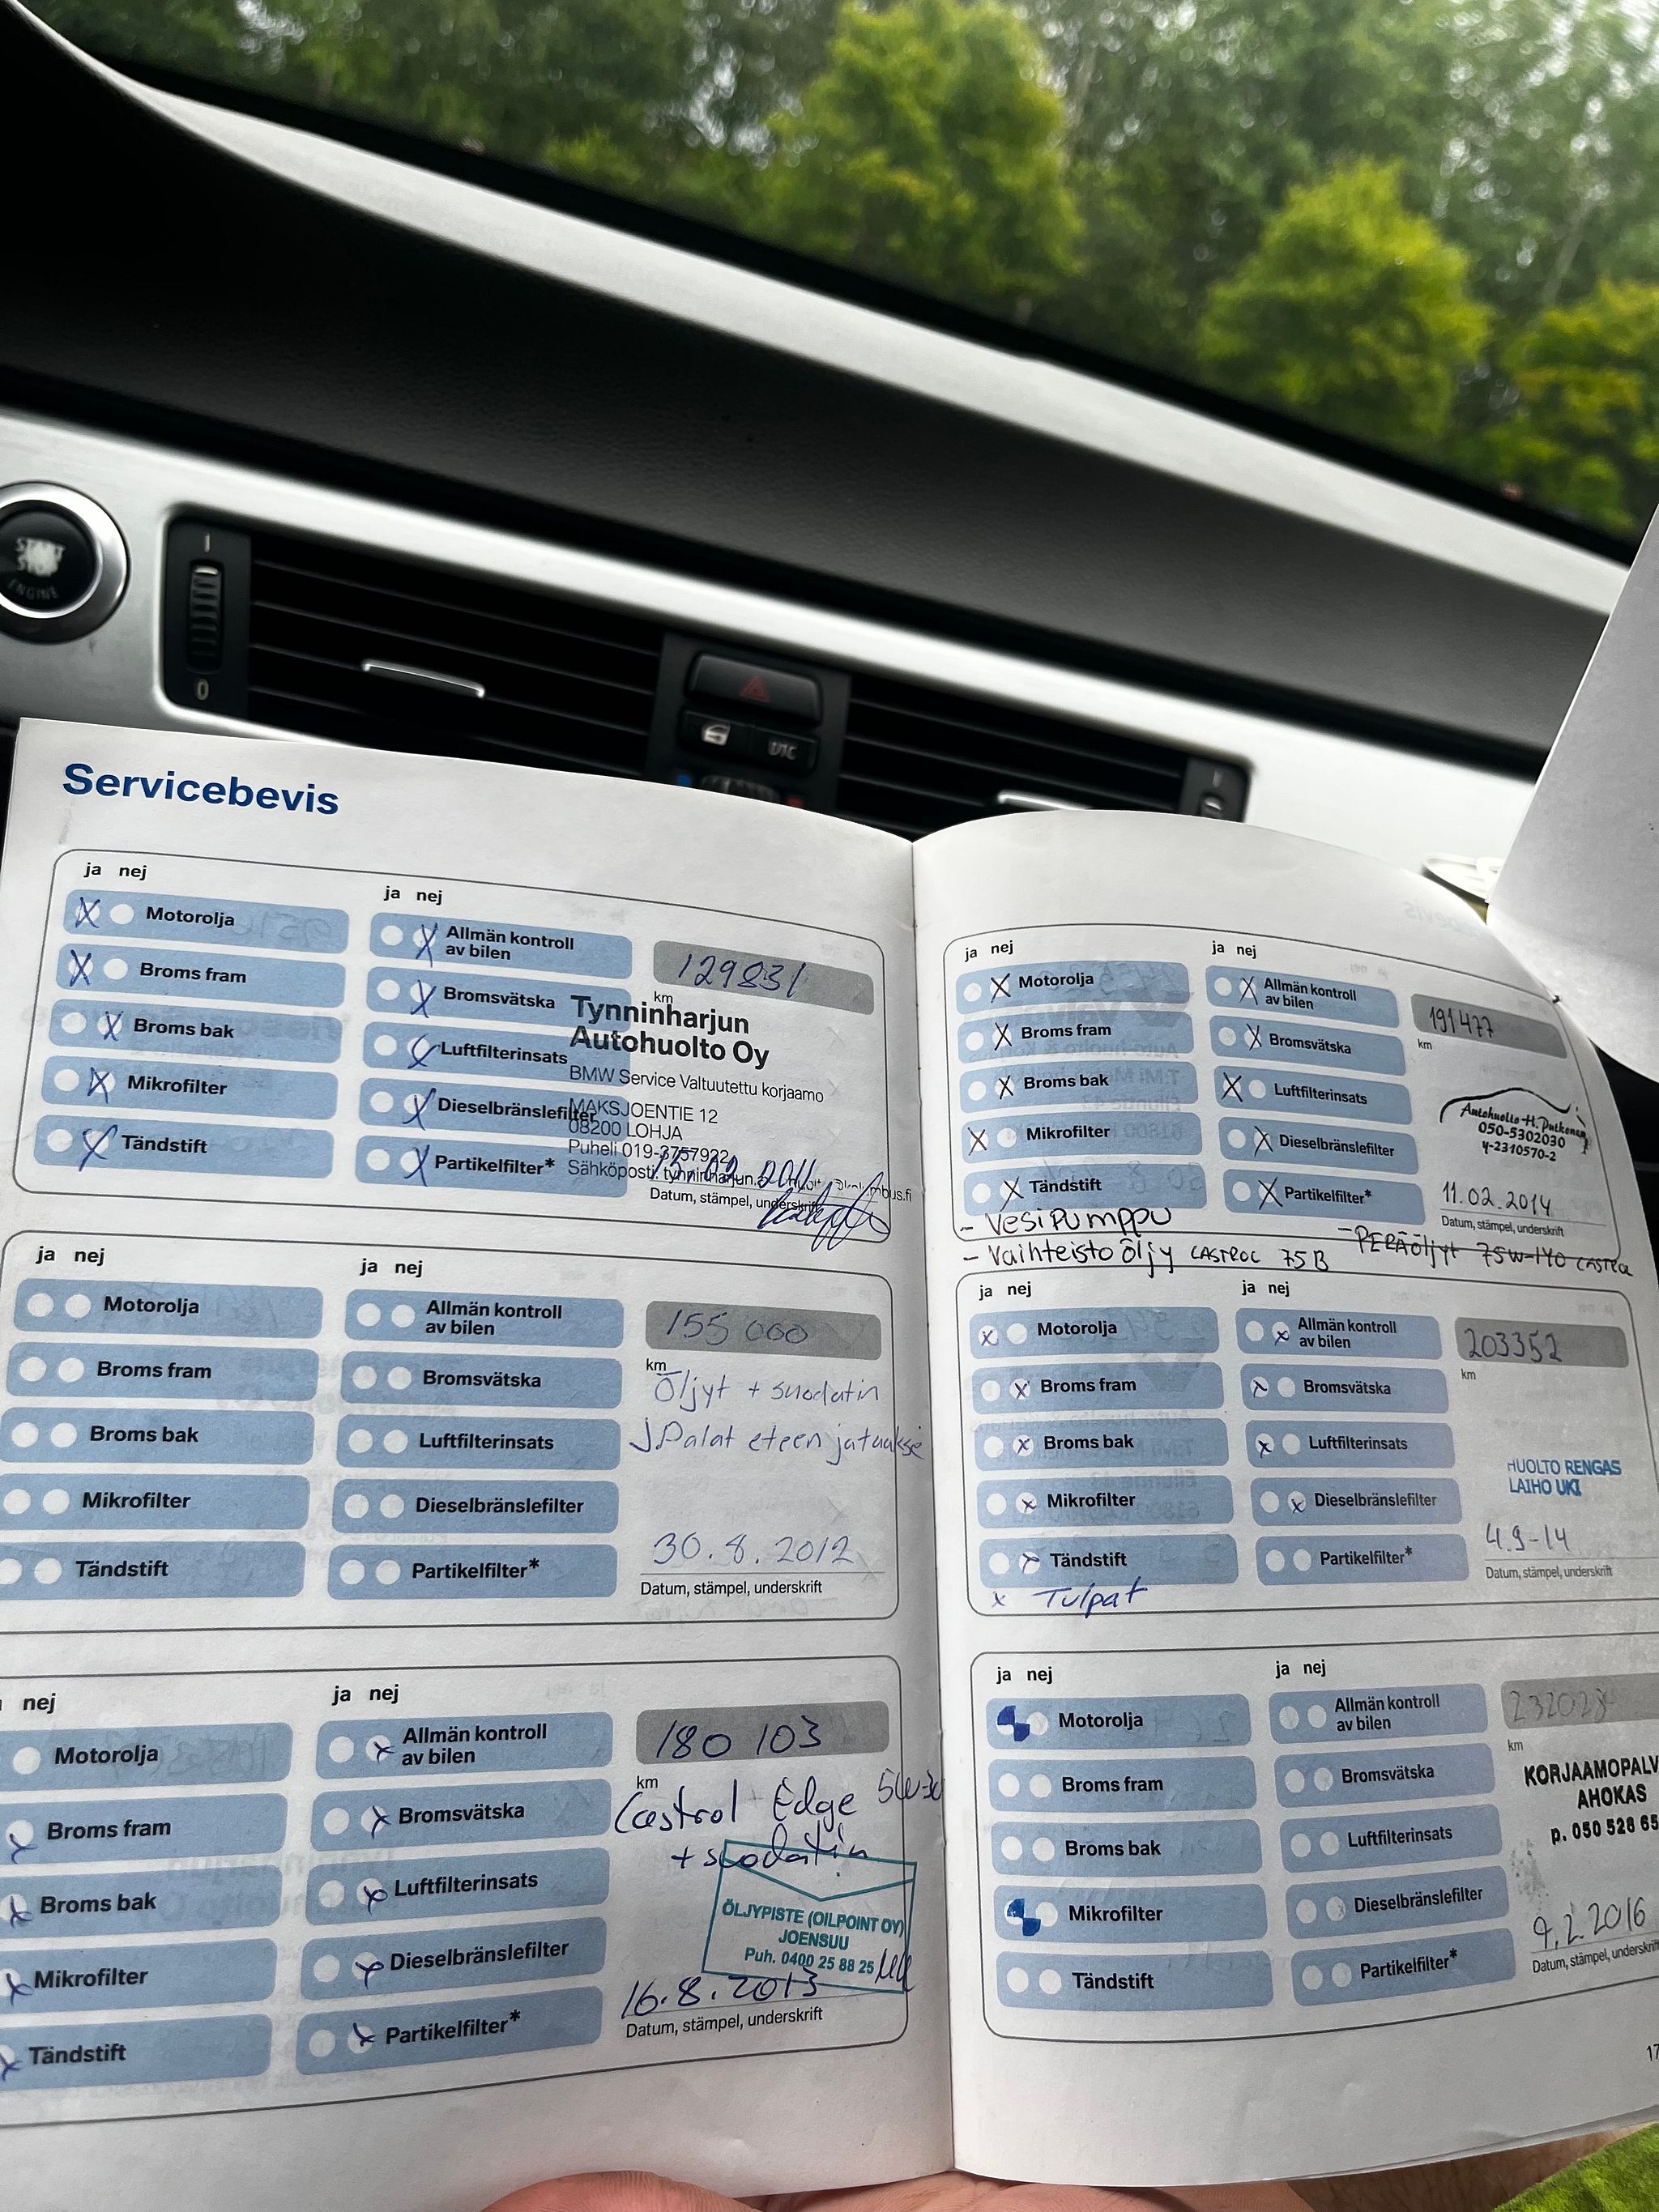 START
STOP
ENGINE
I
0
DTC
Servicebevis
ja nej
ja nej
Motorolja
Allmän kontroll
av bilen
129831
km
Broms fram
Bromsvätska
Tynninharjun
Autohuolto Oy
Broms bak
Luftfilterinsats
BMW Service Valtuutettu korjaamo
Mikrofilter
Dieselbränslefilter
MAKSJOENTIE 12
08200 LOHJA
Tändstift
Partikelfilter*
Puheli 019-3757922
Sähköposti:
15.02.2011
Datum, stämpel, underskrift
ja nej
ja nej
Motorolja
Allmän kontroll
av bilen
155 000
km
Broms fram
Bromsvätska
Öljyt + suodatin
Broms bak
Luftfilterinsats
JPalat eteen
Mikrofilter
Dieselbränslefilter
Tändstift
Partikelfilter*
30.8.2012
Datum, stämpel, underskrift
nej
ja nej
Motorolja
Allmän kontroll
av bilen
180 103
km
Broms fram
Bromsvätska
Castrol Edge
+ suodatin
Broms bak
Luftfilterinsats
ÖLJYPISTE (OILPOINT OY)
JOENSUU
Puh. 0400 25 88 25
Mikrofilter
Dieselbränslefilter
Tändstift
Partikelfilter*
16.8.2013
Datum, stämpel, underskrift
ja nej
ja nej
Motorolja
Allmän kontroll
av bilen
191477
km
Broms fram
Bromsvätska
Broms bak
Luftfilterinsats
Autohuolto H. Putkonen
050-5302030
y-2310570-2
Mikrofilter
Dieselbränslefilter
Tändstift
Partikelfilter*
11.02.2014
Datum, stämpel, underskrift
- Vesipumppu
- Vaihteistoöljy CASTROL 75B
- PERÄöljyt 75W-140 CASTROL
ja nej
ja nej
Motorolja
Allmän kontroll
av bilen
203352
km
Broms fram
Bromsvätska
Broms bak
Luftfilterinsats
HUOLTO RENGAS
LAIHO UKI
Mikrofilter
Dieselbränslefilter
Tändstift
Partikelfilter*
4.9-14
Datum, stämpel, underskrift
x Tulpat
ja nej
ja nej
Motorolja
Allmän kontroll
av bilen
km
Broms fram
Bromsvätska
KORJAAMOPALV
AHOKAS
p. 050 528 65
Broms bak
Luftfilterinsats
Mikrofilter
Dieselbränslefilter
Tändstift
Partikelfilter*
9.2.2016
Datum, stämpel, underskrift
17